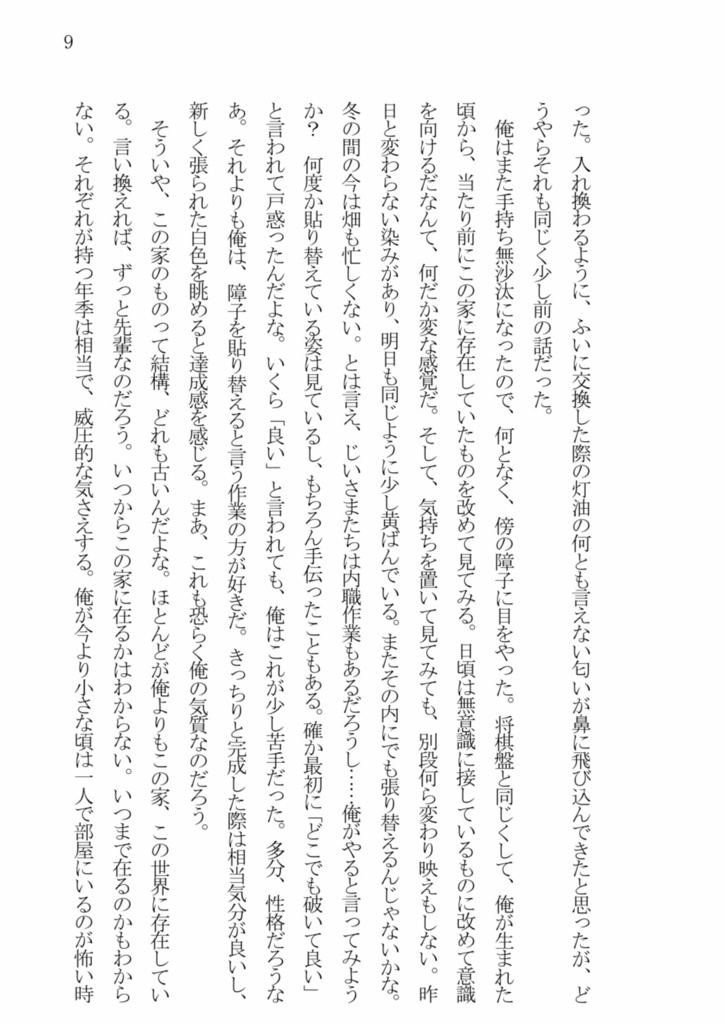 9
った。入れ換わるように、ふいに交換した際の灯油の何とも言えない匂いが鼻に飛び込んできたと思ったが、ど
うやらそれも同じく少し前の話だった。
　俺はまた手持ち無沙汰になったので、何となく、傍の障子に目をやった。将棋盤と同じくして、俺が生まれた
頃から、当たり前にこの家に存在していたものを改めて見てみる。日頃は無意識に接しているものに改めて意識
を向けるだなんて、何だか変な感覚だ。そして、気持ちを置いて見てみても、別段何ら変わり映えもしない。昨
日と変わらない染みがあり、明日も同じように少し黄ばんでいる。またその内にでも張り替えるんじゃないかな。
冬の間の今は畑も忙しくない。とは言え、じいさまたちは内職作業もあるだろうし……俺がやると言ってみよう
か？　何度か貼り替えている姿は見ているし、もちろん手伝ったこともある。確か最初に「どこでも破いて良い」
と言われて戸惑ったんだよな。いくら「良い」と言われても、俺はこれが少し苦手だった。多分、性格だろうな
あ。それよりも俺は、障子を貼り替えると言う作業の方が好きだ。きっちりと完成した際は相当気分が良いし、
新しく張られた白色を眺めると達成感を感じる。まあ、これも恐らく俺の気質なのだろう。
　そういや、この家のものって結構、どれも古いんだよな。ほとんどが俺よりもこの家、この世界に存在してい
る。言い換えれば、ずっと先輩なのだろう。いつからこの家に在るかはわからない。いつまで在るのかもわから
ない。それぞれが持つ年季は相当で、威圧的な気さえする。俺が今より小さな頃は一人で部屋にいるのが怖い時